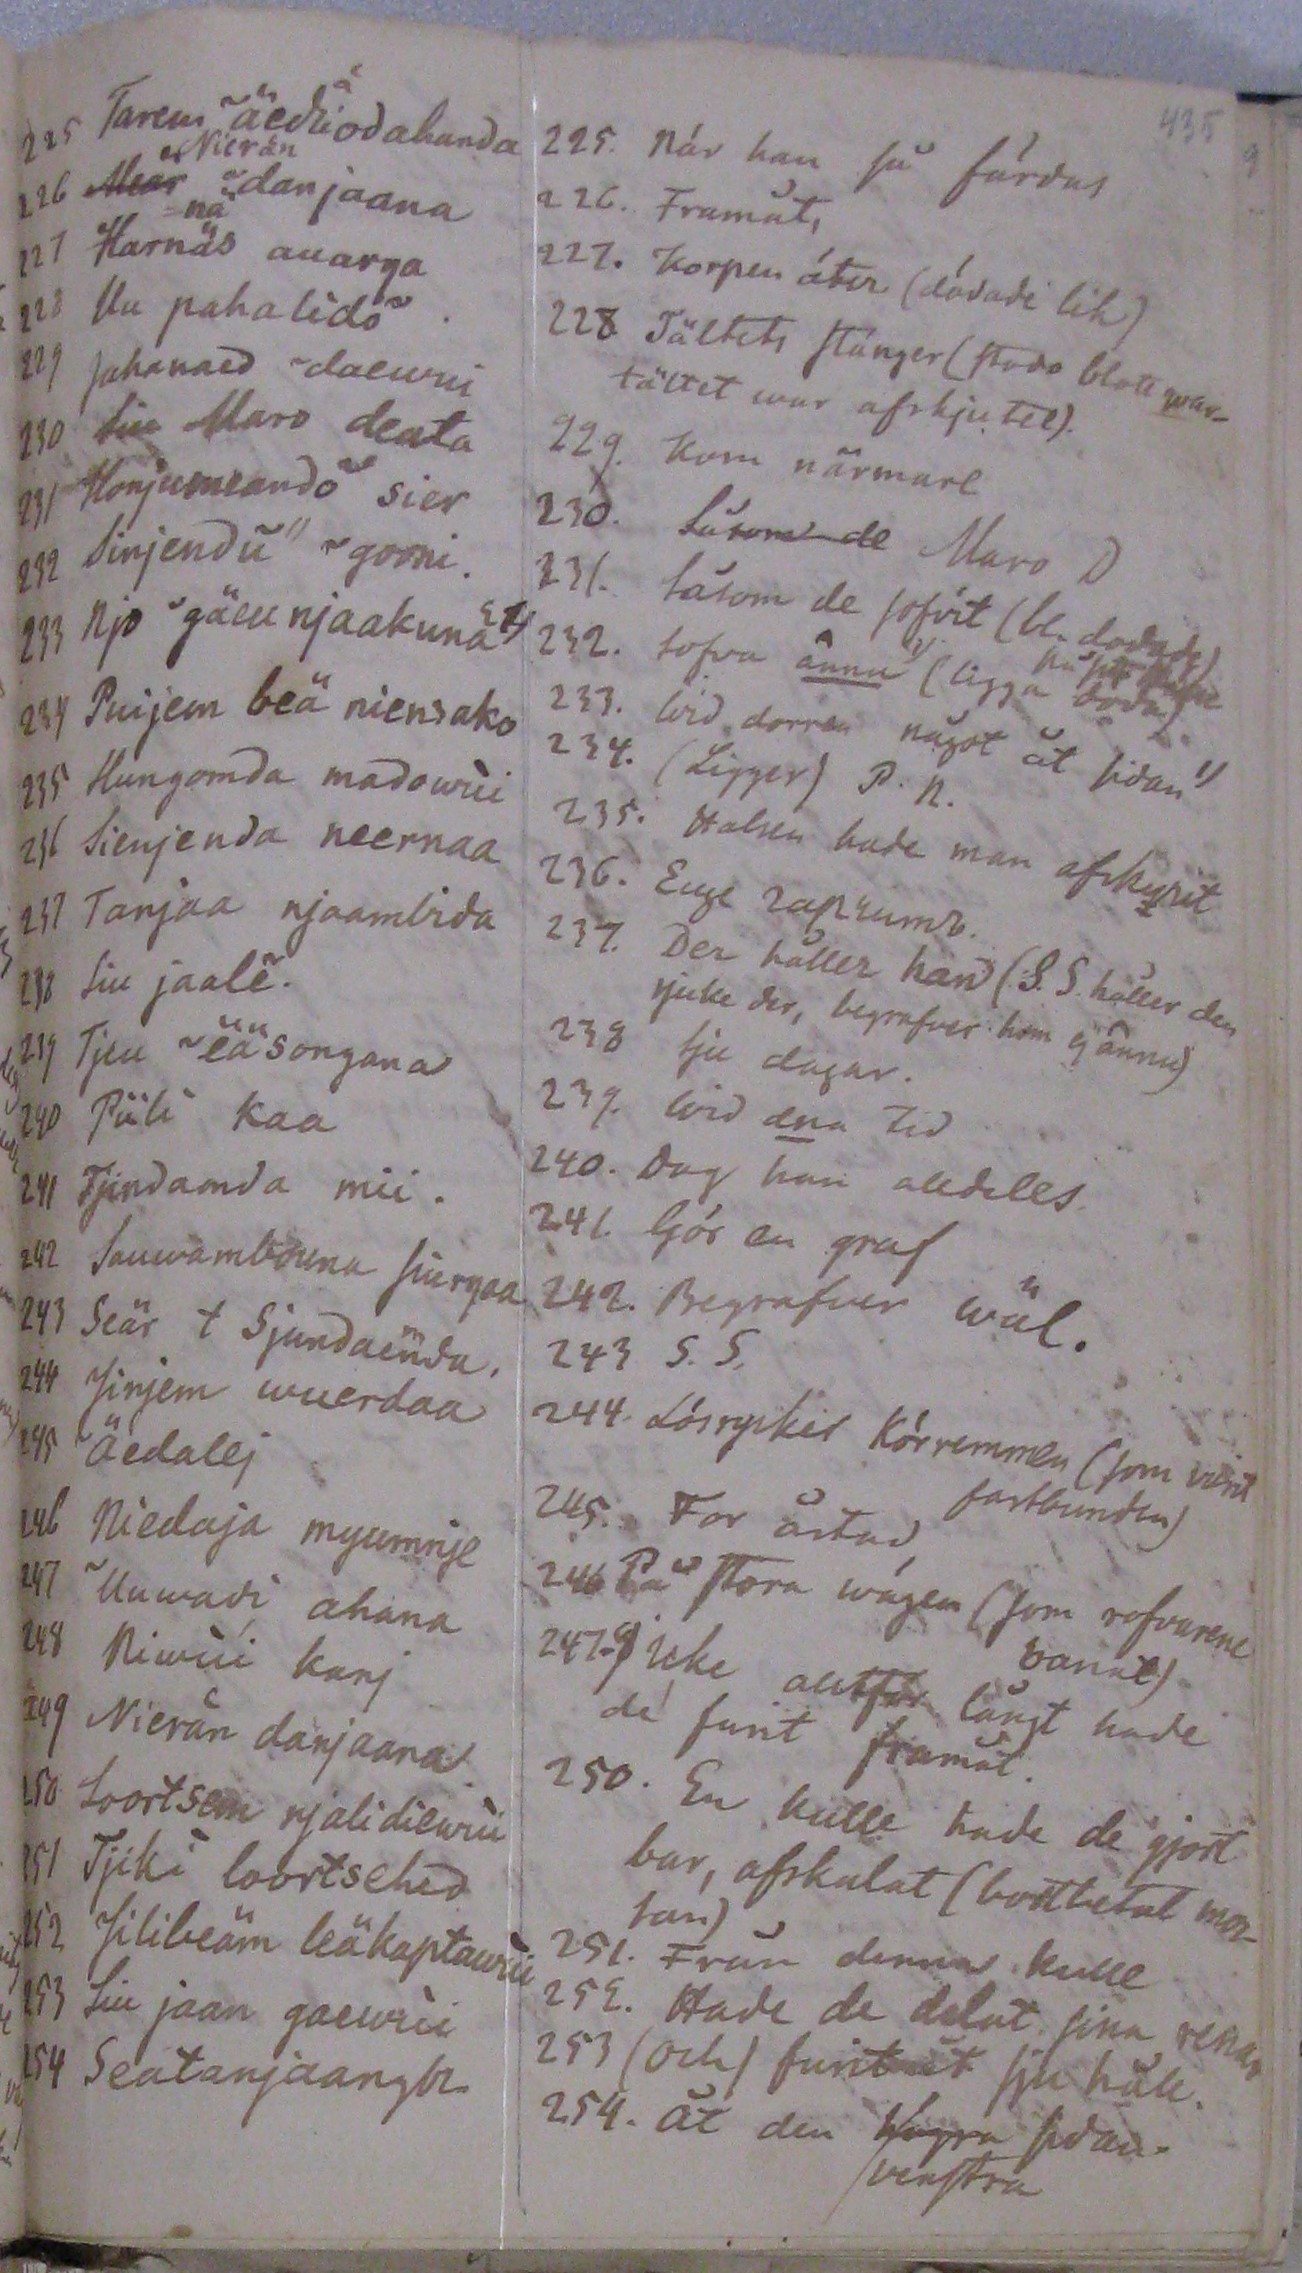 435
9
225 Tarem ~äedäodahanda
Nierän
226 Mear ~danjaana
nä
227 Harnäs auarga
228 Uu pahalidö~.
229 Juhanaed ~daewüi
230 Siu Maro deata
231 Honjumeandö~ sier
232 Sinjendü" ~gooni.
233 Njo ~gäeu njaakunä
234 Puijem beä niensako
235 Hungomda madowüi
236 Sienjenda neernaa
237 Tanjaa njaambida
238 Siu jaalé~.
239 Tjeu ~ëäsongana
240 Püli kaa
241 Tjindamda mii.
242 Sauwambowna siurgaa
243 Seär t Sjundaenda.
244 Jinjem wuerdaa
245 ~Äedalej
246 Niedaja myumnje
247 ~Uuwadi ahana
248 Niwüi kanj
249 Nierän danjaana
250 Loortsem njalidiewüi
251 Tjiki loortsehed
252 Jilibeäm leäkaptawüi
253 Siu jaan gaewüi
254 Seatanjaangor
225. När han så färdas
226. Framåt,
227. Korpen äter (dödade lik)
228 Tältets stänger (stodo blott qwar-
tältet war afskjutet).
229. Kom närmare
230. Såsom de Maro D
231. Såsom de sofvit (bl. dödade)
232. Sofva ännu 1) (ligga döda)
233. Wid dorren något åt sidan 1)
234. (Ligger) P. N.
235. Halsen hade man afskurit
236. Euge
237. Der håller han (S. S. håller den
sjuke der, begrafver hom ej ännu)
238 sju dagar.
239. Wid ena tid
240. Dog han alldeles
241. Gör en graf
242. Begrafver wäl.
243 S. S.
244. Lösryckes Körremmen (som varit
fastbunden)
245. For åstad
246 På stora wägen (som rofvarene
banat)
247-9 Icke allt för långt hade
de farit framåt.
250. En kulle hade de gjort
bar, afskalat (bortbetat mos-
san)
251. Från denna kulle
252. Hade de delat sina renar
253 (Och) farit åt sju håll.
254. Åt den högra sidan.
venstra